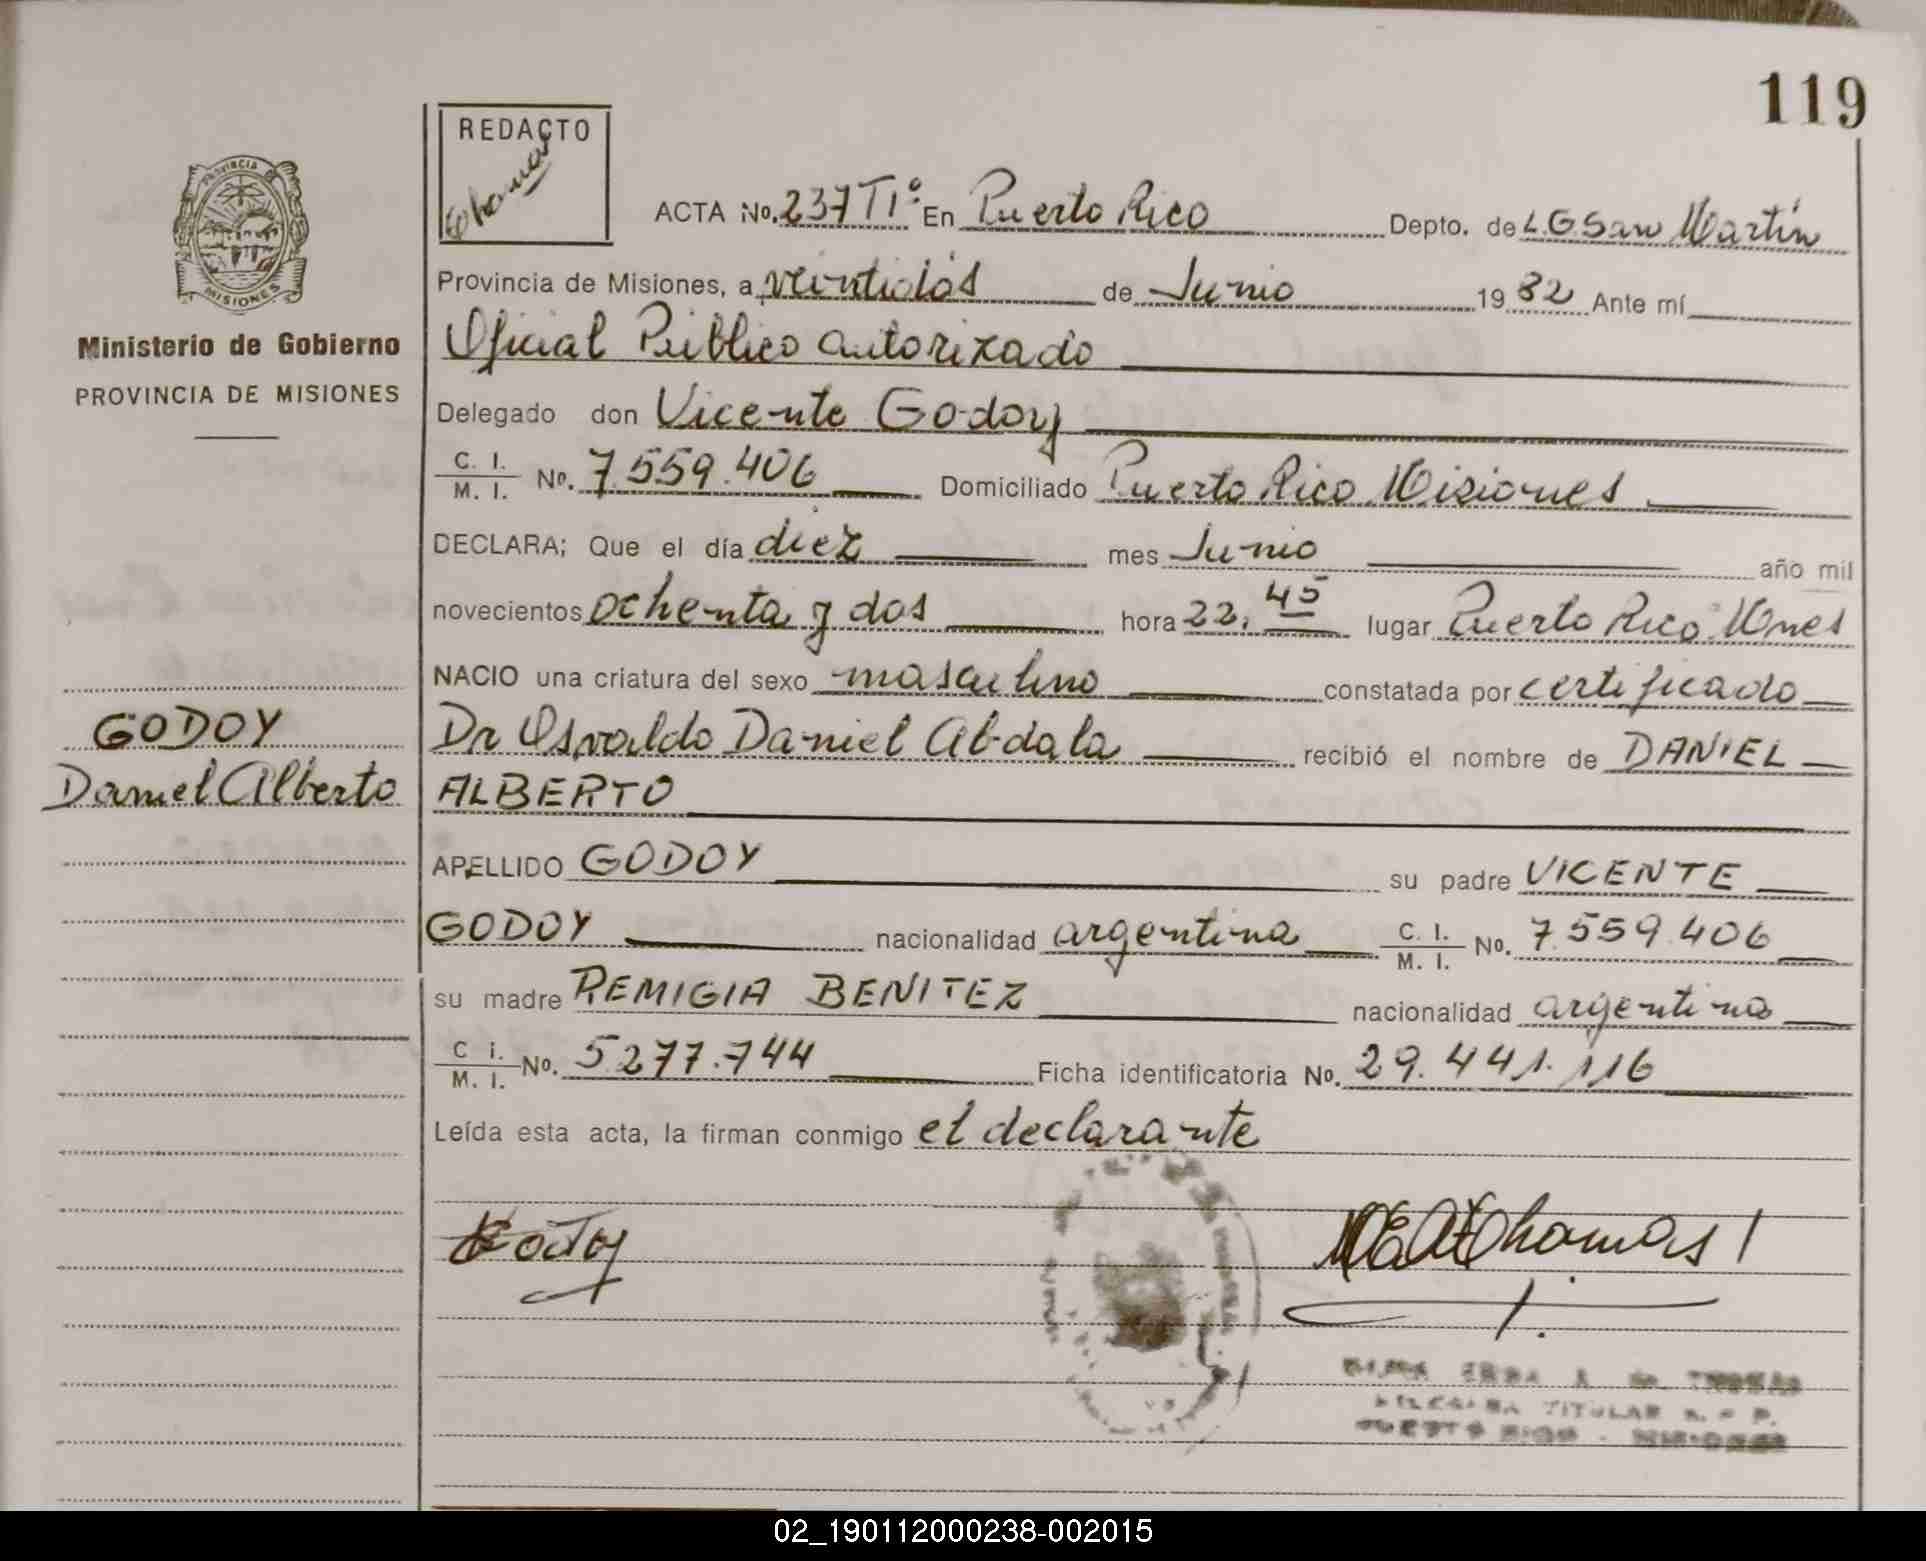 119
REDACTO
Thomas
PROVINCIA
MISIONES
Ministerio de Gobierno
PROVINCIA DE MISIONES
ACTA No. 237 T1º En Puerto Rico Depto. de L.G. San Martín
Provincia de Misiones, a veintidós de Junio 19 82 Ante mí
Oficial Público autorizado
Delegado don Vicente Godoy
C. I. / M. I. No. 7.559.406 Domiciliado Puerto Rico Misiones
DECLARA; Que el día diez mes Junio año mil
novecientos ochenta y dos hora 22,45 lugar Puerto Rico Mnes
NACIO una criatura del sexo masculino constatada por certificado
Dr Osvaldo Daniel Abdala recibió el nombre de DANIEL
ALBERTO
GODOY
Daniel Alberto
APELLIDO GODOY su padre VICENTE
GODOY nacionalidad argentina C. I. / M. I. No. 7.559.406
su madre REMIGIA BENITEZ nacionalidad argentina
C i. / M. I. No. 5.277.744 Ficha identificatoria No. 29.441.116
Leída esta acta, la firman conmigo el declarante
Godoy
Thomas
THOMAS
TITULAR
PUERTO RICO - MISIONES
02_190112000238-002015